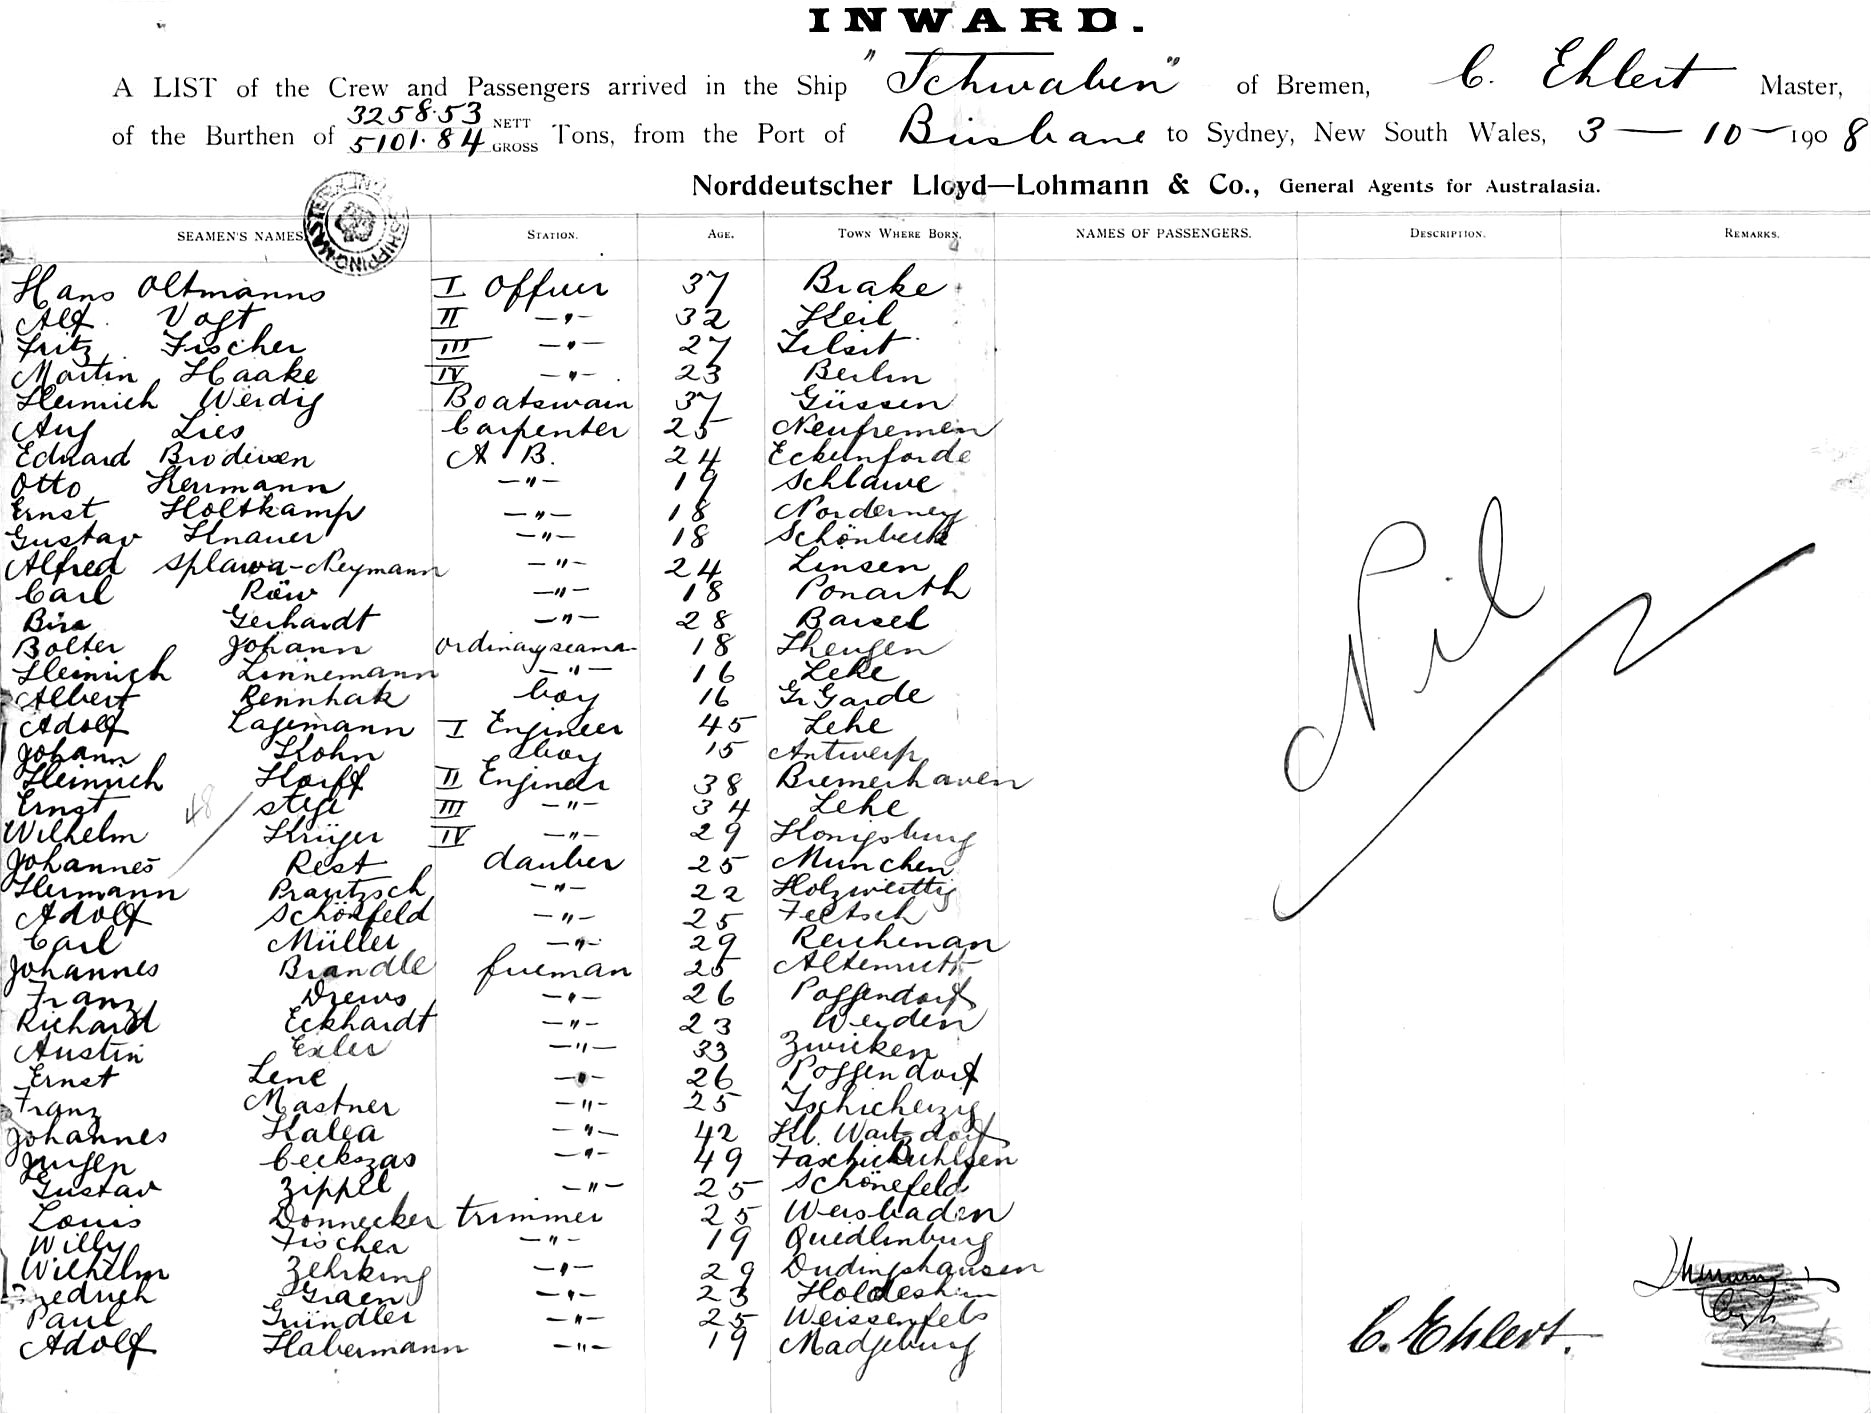 INWARD.
A LIST of the Crew and Passengers arrived in the Ship "Schwaben" of Bremen, C. Ehlert Master,
of the Burthen of 3258.53 NETT 5101.84 GROSS Tons, from the Port of Brisbane to Sydney, New South Wales, 3 — 10 — 1908
Norddeutscher Lloyd—Lohmann & Co., General Agents for Australasia.
SEAMEN'S NAMES. STATION. AGE. TOWN WHERE BORN. NAMES OF PASSENGERS. DESCRIPTION. REMARKS.
Hans Oltmanns I Officer 37 Brake
Alf. Vogt II —"— 32 Keil
Fritz Fischer III —"— 27 Tilsit
Martin Haake IV —"— 23 Berlin
Heinrich Werdig Boatswain 37 Güssen
Aug Lies Carpenter 25 Neufremen
Eduard Brodersen A B. 24 Eckernforde
Otto Herrmann —"— 19 Schlawe
Ernst Holtkamp —"— 18 Norderney
Gustav Knauer —"— 18 Schönbeck
Alfred Splawa-Neymann —"— 24 Linsen
Carl Röw —"— 18 Ponarth
Gerhardt —"— 28 Barsel
Bolter Johann ordinary seama 18
Heinrich Linnemann —"— 16 Lehe
Albert Rennhak boy 16 Gr Garde
Adolf Lagemann I Engineer 45 Lehe
Johann Kohn boy 15 Antwerp
Heinrich Horff II Engineer 38 Bremerhaven
Ernst Stege III —"— 34 Lehe
48
Wilhelm Krüger IV —"— 29 Konigsburg
Johannes Rest dauber 25 Munchen
Hermann Prautzsch —"— 22
Adolf Schönfeld —"— 25
Carl Müller —"— 29 Reichenan
Johannes Brandle fireman 25
Franz Drews —"— 26 Poggendorf
Richard Eckhardt —"— 23 Weyden
Austin Exler —"— 33 Zwicken
Ernst Lene —"— 26 Poggendorf
Franz Mastner —"— 25 Tschicherzig
Johannes Kalea —"— 42 Kl. Wartzdorf
Jurgen Ceckszas —"— 49
Gustav Zippel —"— 25 Schönefeld
Louis Donnecker trimmer 25 Weisbaden
Willy Fischer —"— 19 Quedlinburg
Wilhelm Zehrking —"— 29 Dudingshausen
Fredrich Graen —"— 23 Holdeshim
Paul Gründler —"— 25 Weissenfels
Adolf Habermann —"— 19 Madgeburg
Nil
C. Ehlert.